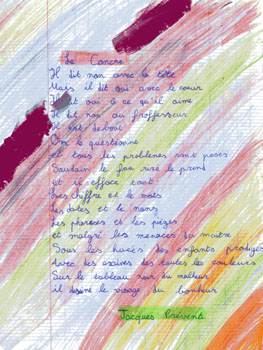 Le Cancre
Il dit non avec la tête
Mais il dit oui avec le cœur
Il dit oui à ce qu'il aime
Il dit non au proffesseur
Il est debout
On le questionne
et tous les problèmes sont posés
Soudain le fou rire le prend
et il efface tout
Les chiffre et le mots
Les dates et le noms
Les phrases et les pièges
et malgré les menaces du maître
Sous les huées des enfants prodiges
Avec des craires de toutes les couleurs
Sur le tableau noir du malheur
il dessine le visage du bonheur
Jacques Prévert.